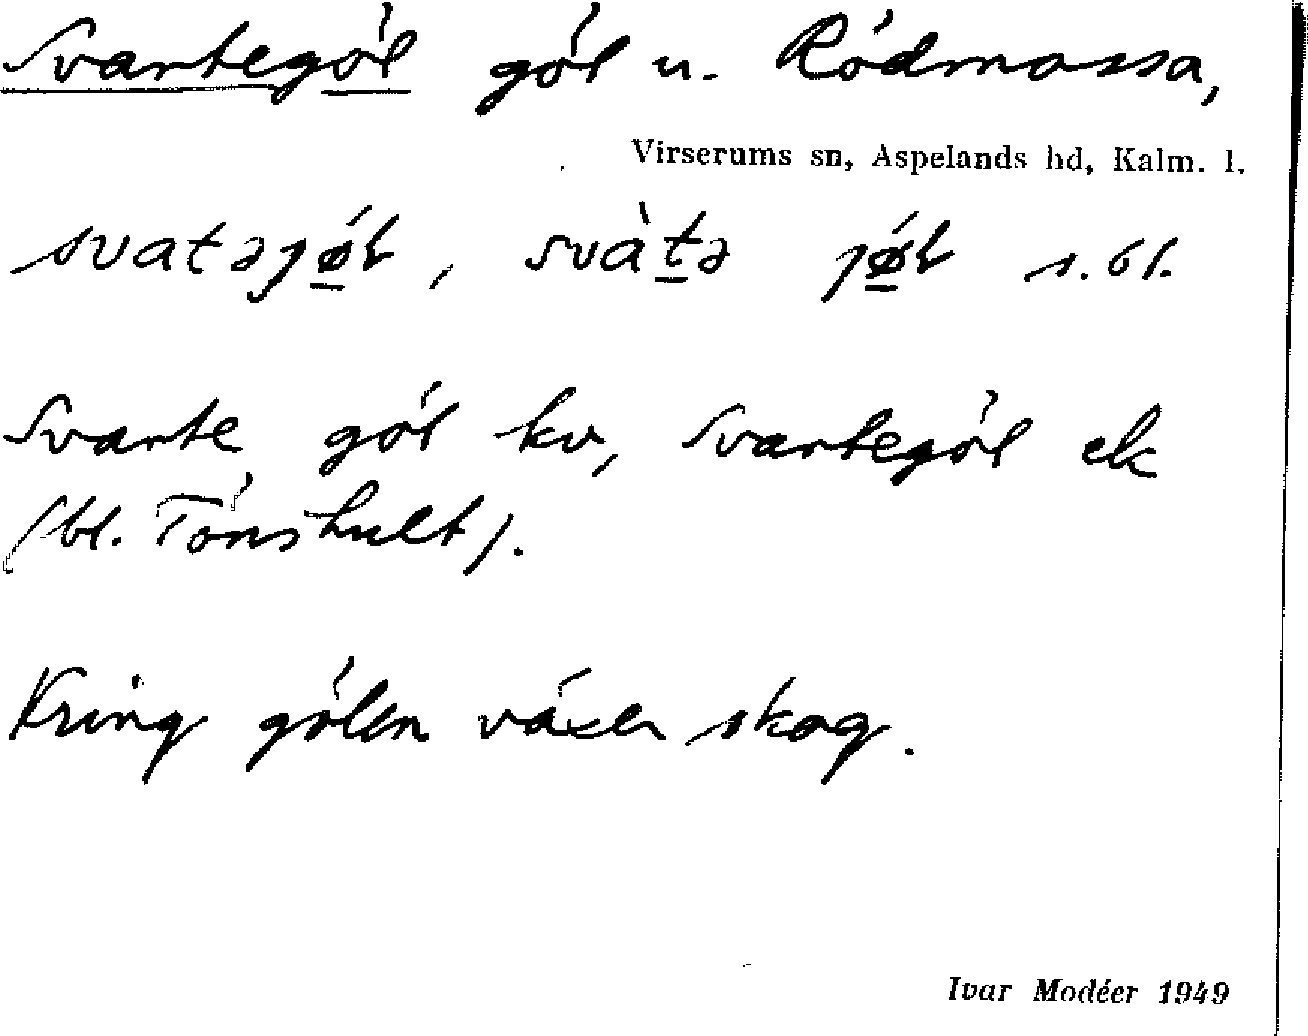 Svartegöl göl u. Rödmossa,
Virserums sn, Aspelands hd, Kalm. l.
svatəjǿ̱l, svàt̲ə jǿ̱l s. bl.
Svarte göl kv, Svartegöl ek
(bl. Tönshult).
Kring gölen växer skog.
Ivar Modéer 1949